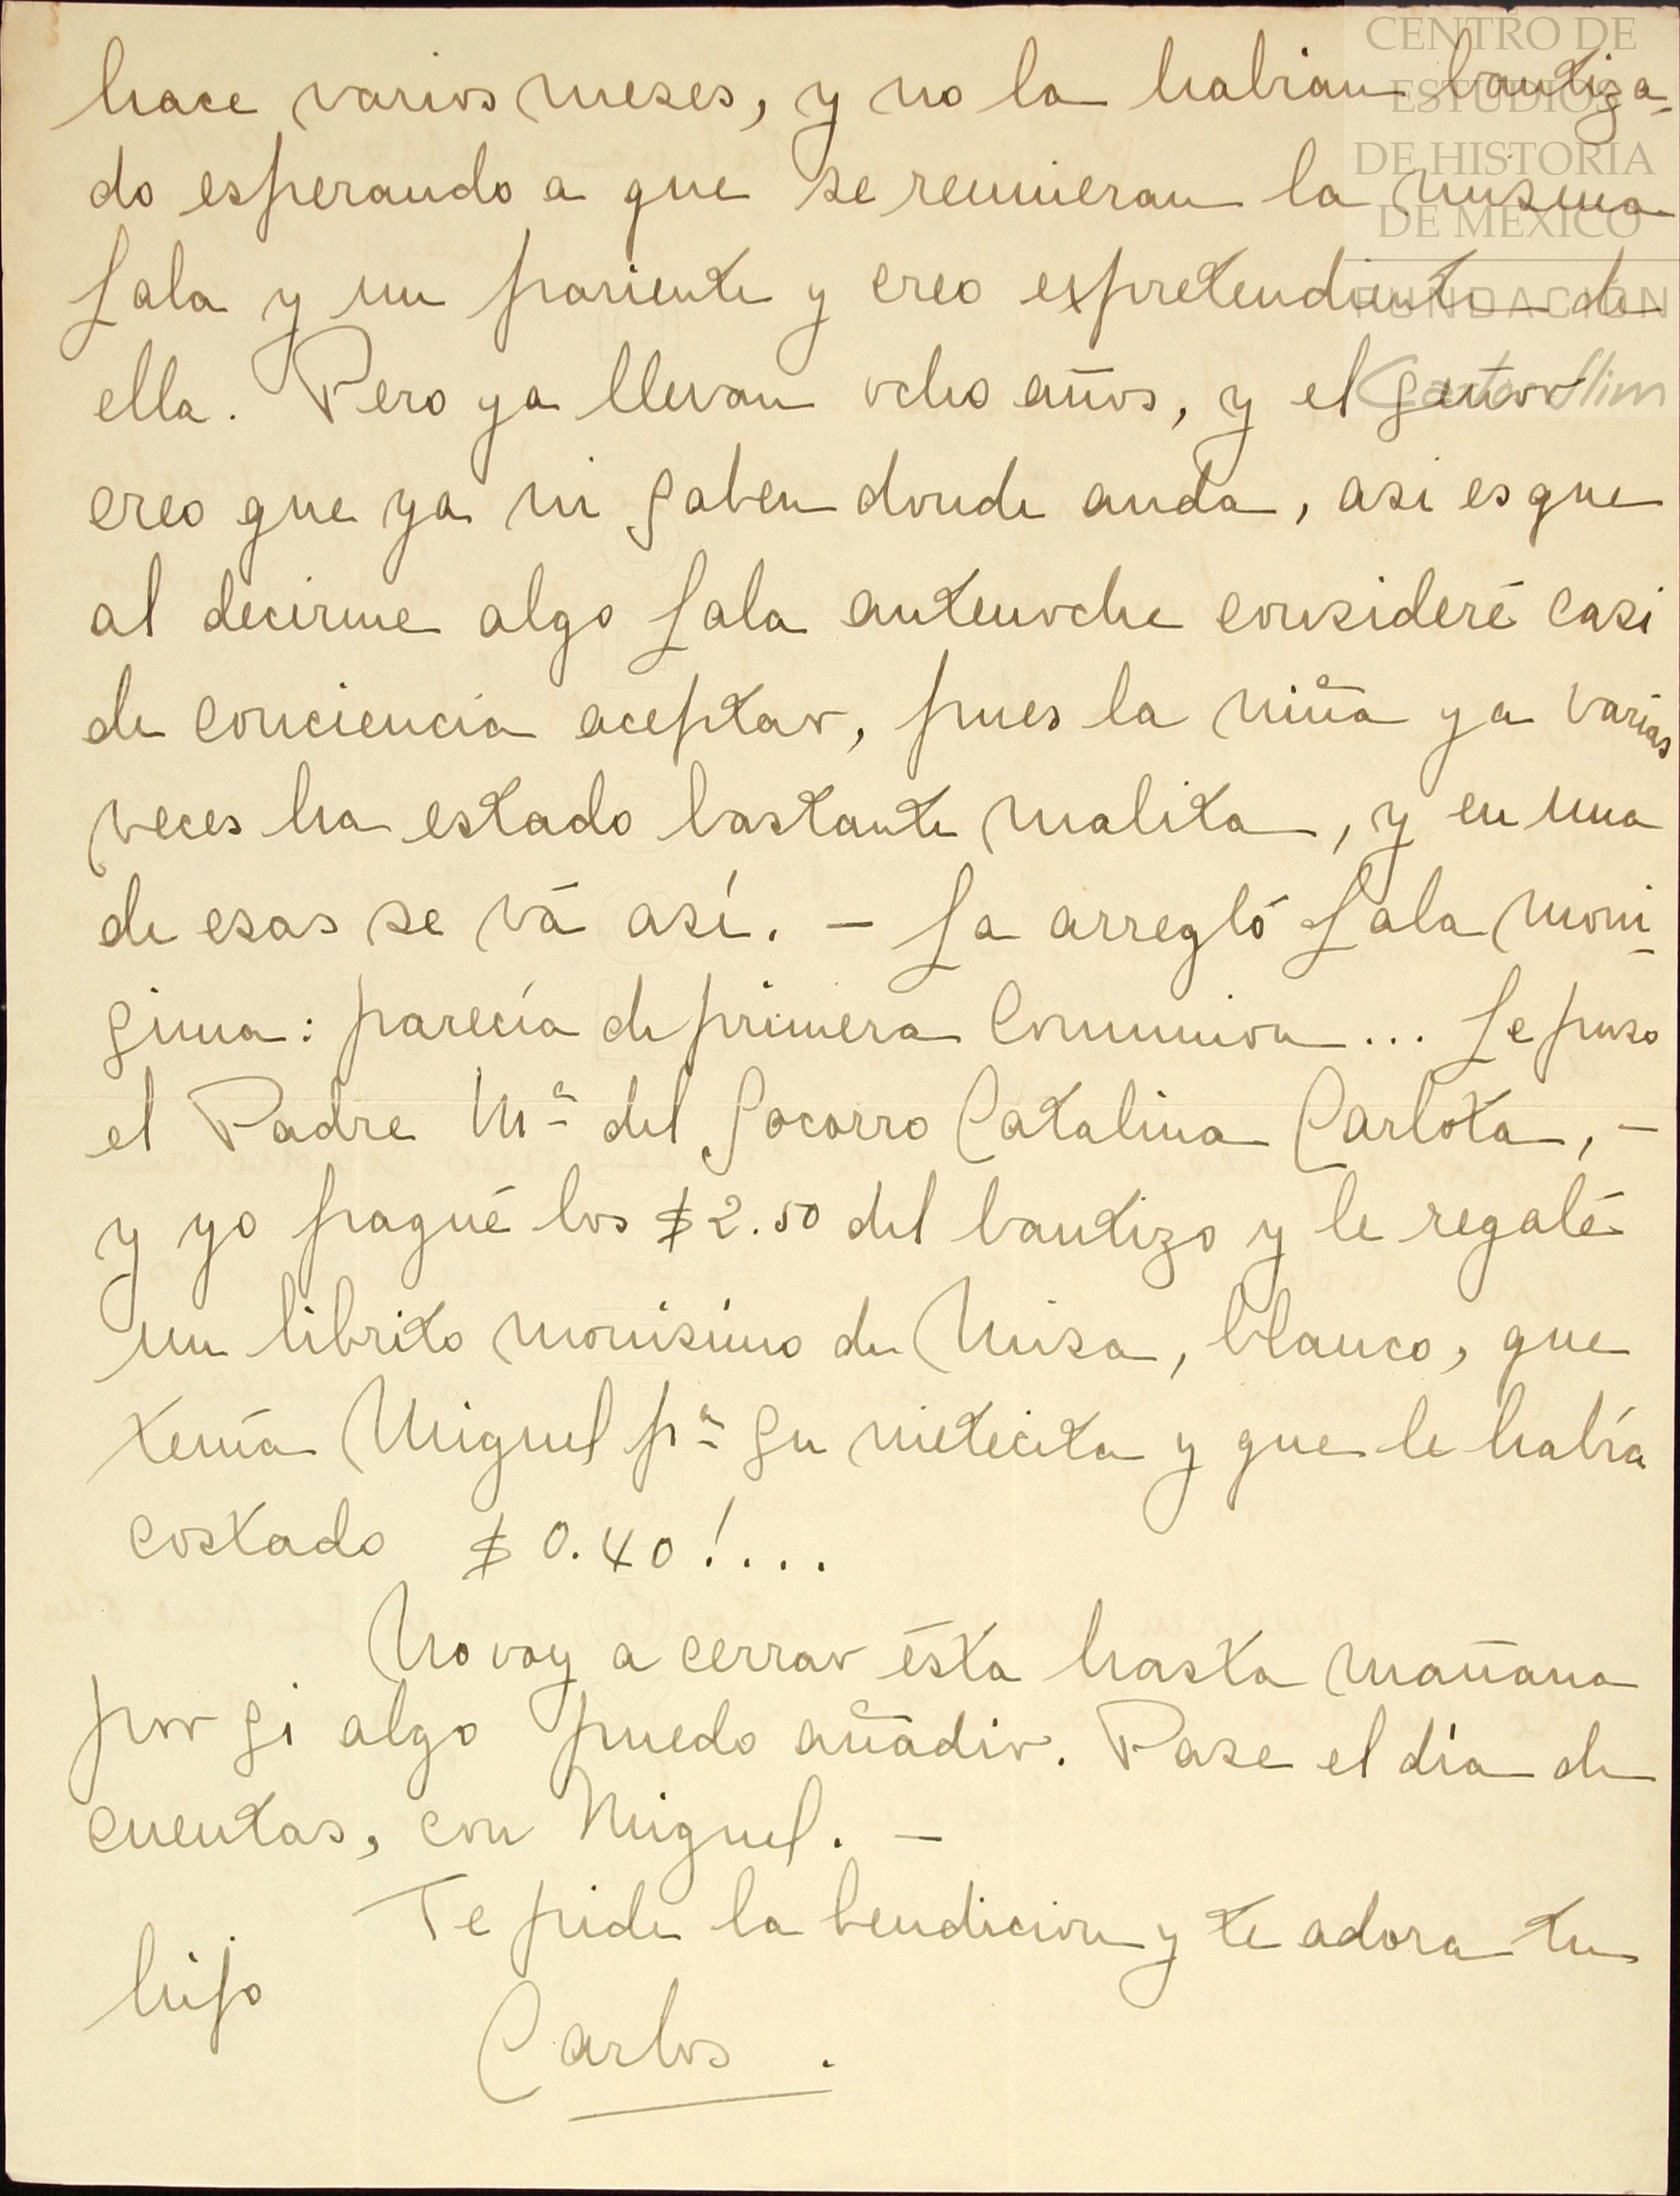 CENTRO DE
ESTUDIOS
DE HISTORIA
DE MÉXICO
FUNDACIÓN
Carlos Slim
hace varios meses, y no la habian bautiza-
do esperando a que se reunieran la misma
Lala y un pariente y creo expretendiente de
ella. Pero ya llevan ocho años, y el señor
creo que ya ni saben donde anda, asi es que
al decirme algo Lala antenoche consideré casi
de conciencia aceptar, pues la niña ya varias
veces ha estado bastante malita, y en una
de esas se vá así. – La arregló Lala moni-
sima: parecía de primera Comunion... Le puso
el Padre Mª del Socorro Catalina Carlota, –
y yo pagué los $2.50 del bautizo y le regalé
un librito monisimo de Misa, blanco, que
tenía Miguel pª su nietecita y que le había
costado $0.40!....
No voy a cerrar ésta hasta mañana
por si algo puedo añadir. Pase el día de
cuentas, con Miguel. –
Te pide la bendicion y te adora tu
hijo
Carlos.